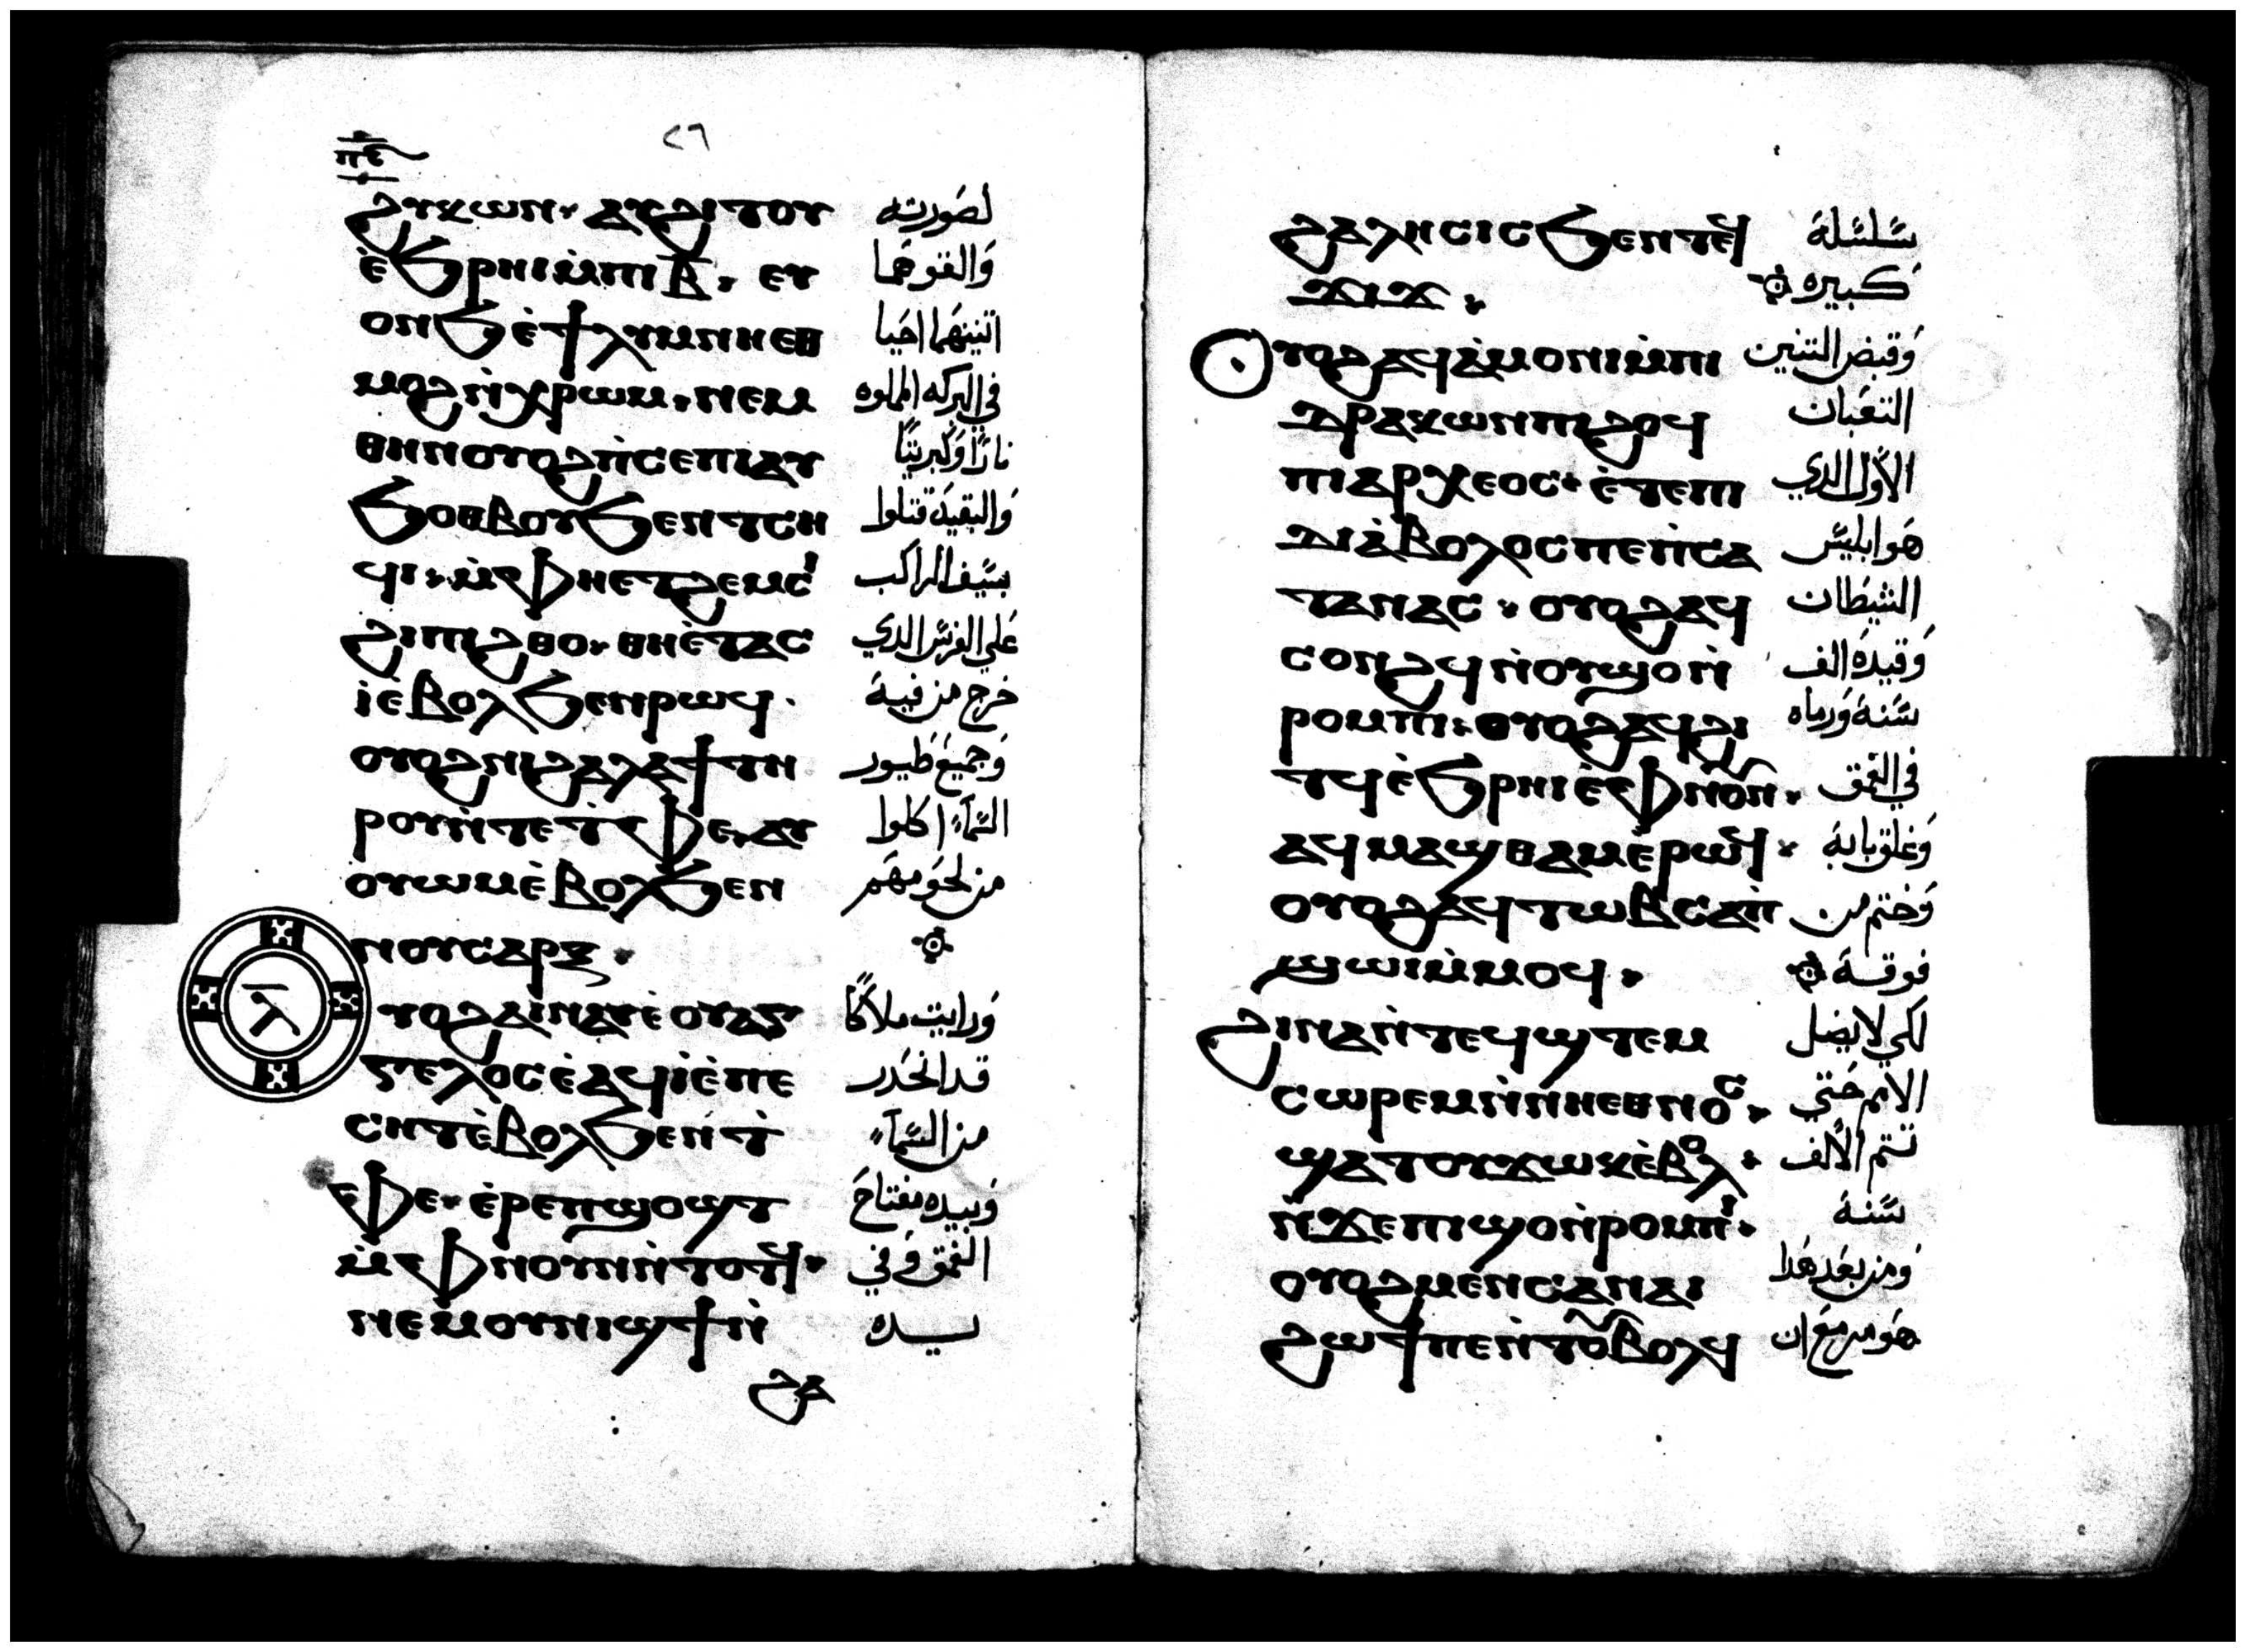 ⲡⲋ
٨٦
ϩⲩⲕⲱⲛ· ⲁⲩϩⲓⲧⲟⲩ لصورته
ⲉ̀ϧⲣⲏⲓ ⲙ̀ⲡⲓⲃ̅· ⲉⲩ والقوهما
ⲟⲛϧ ⲉ̀ϯⲗⲩⲙⲛⲏ ⲉⲑ اتنينهما احيا
ⲙⲟϩ ⲛ̀ⲭⲣⲱⲙ· ⲛⲉⲙ في البركه المملوه
ⲑⲏⲛ ⲟⲩⲟϩ ⲡ̀ⲥⲉⲡⲓ ⲁⲩ نارًا وكبريتًا
ϧⲟⲑⲃⲟⲩ ϧⲉⲛ ⲧⲥⲏ والبقية قتلوا
ϥⲓ· ⲙ̀ⲫⲏⲉⲧϩⲉⲙⲥⲓ بسيف الراكب
ϩⲓ ⲡⲓϩⲑⲟ· ⲑⲏⲉ̀ⲧⲁⲥ علي الفرس الدي
ⲓ̀ ⲉ̀ⲃⲟⲗ ϧⲉⲛ ⲣⲱϥ· خرج من فيه
ⲟⲩⲟϩ ⲛⲓϩⲁⲗⲁϯ ⲧⲏ وجميع طيور
ⲣⲟⲩ ⲛ̀ⲧⲉ ⲧ̀ⲫⲉ· ⲁⲩ السماء اكلوا
ⲟⲩⲱⲙ ⲉ̀ⲃⲟⲗ ϧⲉⲛ من لحومهم
ⲛⲟⲩⲥⲁⲣⲝ·
ⲗ̅
ⲩⲟϩ ⲁⲓⲛⲁⲩ ⲉ̀ⲟⲩⲁⲅ ورايت ملاكًا
ⲅⲉⲗⲟⲥ ⲉ̀ⲁϥⲓ̀ ⲉ̀ⲡⲉ قد انحدر
ⲥⲏⲧ ⲉ̀ⲃⲟⲗ ϧⲉⲛ ⲧ̀ من السماء
ⲫⲉ· ⲉ̀ⲣⲉ ⲡϣⲟϣⲧ وبيده مفتاح
ⲙ̀ⲫⲛⲟⲩⲛ ⲛ̀ⲧⲟⲧϥ· الغمق وفي
ⲛⲉⲙ ⲟⲩⲛⲓϣϯ ⲛ̀ يده
ϩⲁ
ϩⲁⲗⲏⲥⲓⲥ ϧⲉⲛ ⲧⲉϥ سلسلة
ϫⲓϫ· كبيره
ⲟⲩⲟϩ ⲁϥⲁ̀ⲙⲟⲛⲓ ⲙ̀ⲡⲓ وقبض التنين
ⲇⲣⲁⲕⲱⲛ ⲡⲓϩⲟϥ التعبان
ⲡⲓⲁⲣⲭⲉⲟⲥ· ⲉ̀ⲧⲉ ⲡⲓ الأول الدي
ⲇⲓⲁ̀ⲃⲟⲗⲟⲥ ⲡⲉ ⲡ̀ⲥⲁ هو ابليس
ⲧⲁⲛⲁⲥ· ⲟⲩⲟϩ ⲁϥ الشيطان
ⲥⲟⲛϩϥ ⲛ̀ⲟⲩϣⲟ ⲛ̀ وقيده الف
ⲣⲟⲙⲡⲓ· ⲟⲩⲟϩ ⲁϥϩⲓ سنة ورماه
ⲧϥ ⲉ̀ϧⲣⲏⲓ ⲉ̀ⲫⲛⲟⲩⲛ· في الغمق
ⲁϥⲙⲁϣⲑⲁⲙ ⲉ̀ⲣⲱϥ· وغلق بابة
ⲟⲩⲟϩ ⲁϥⲧⲱⲃ ⲥⲁⲡ̀ وختم من
ϣⲱⲓ ⲙ̀ⲙⲟϥ· فوقة
ϩⲓⲛⲁ ⲛ̀ⲧⲉϥϣⲧⲉⲙ لكي لا يضل
ⲥⲱⲣⲉⲙ ⲛ̀ⲛⲓⲉⲑⲛⲟⲥ· الامم حتي
ϣⲁⲧⲟⲩϫⲱⲕ ⲉ̀ⲃⲟⲗ· تتم الألف
ⲛ̀ϫⲉ ⲡⲓϣⲟ ⲛ̀ⲣⲟⲙⲡⲓ· سنة
ⲟⲩⲟϩ ⲙⲉⲛⲉⲛⲥⲁ ⲛⲁⲓ ومن بعد هدا
ϩⲱϯ ⲡⲉ ⲛ̀ⲧⲟⲩⲃⲟⲗϥ هو مزمع ان